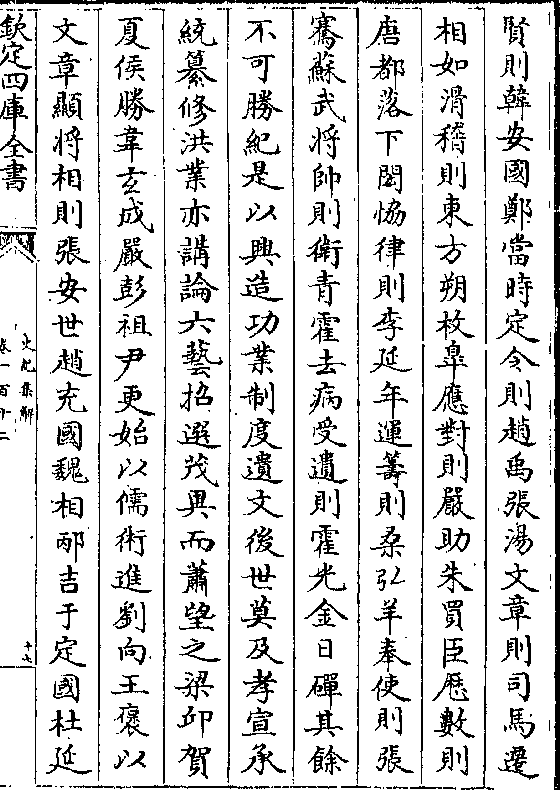 賢則韓安國鄭當時定令則趙禹張湯文章則司馬遷
相如滑稽則東方朔枚臯應對則嚴助朱買臣厯數則
唐都落下閎恊律則李延年運籌則桑弘羊奉使則張
騫蘇武將帥則衛青霍去病受遺則霍光金日磾其餘
不可勝紀是以興造功業制度遺文後世莫及孝宣承
統纂修洪業亦講論六藝招選茂異而蕭望之梁邱賀
夏侯勝韋玄成嚴彭祖尹更始以儒術進劉向王褒以
文章顯將相則張安世趙充國魏相邴吉于定國杜延
欽定四庫全書
史記集解
卷一百十二
十七